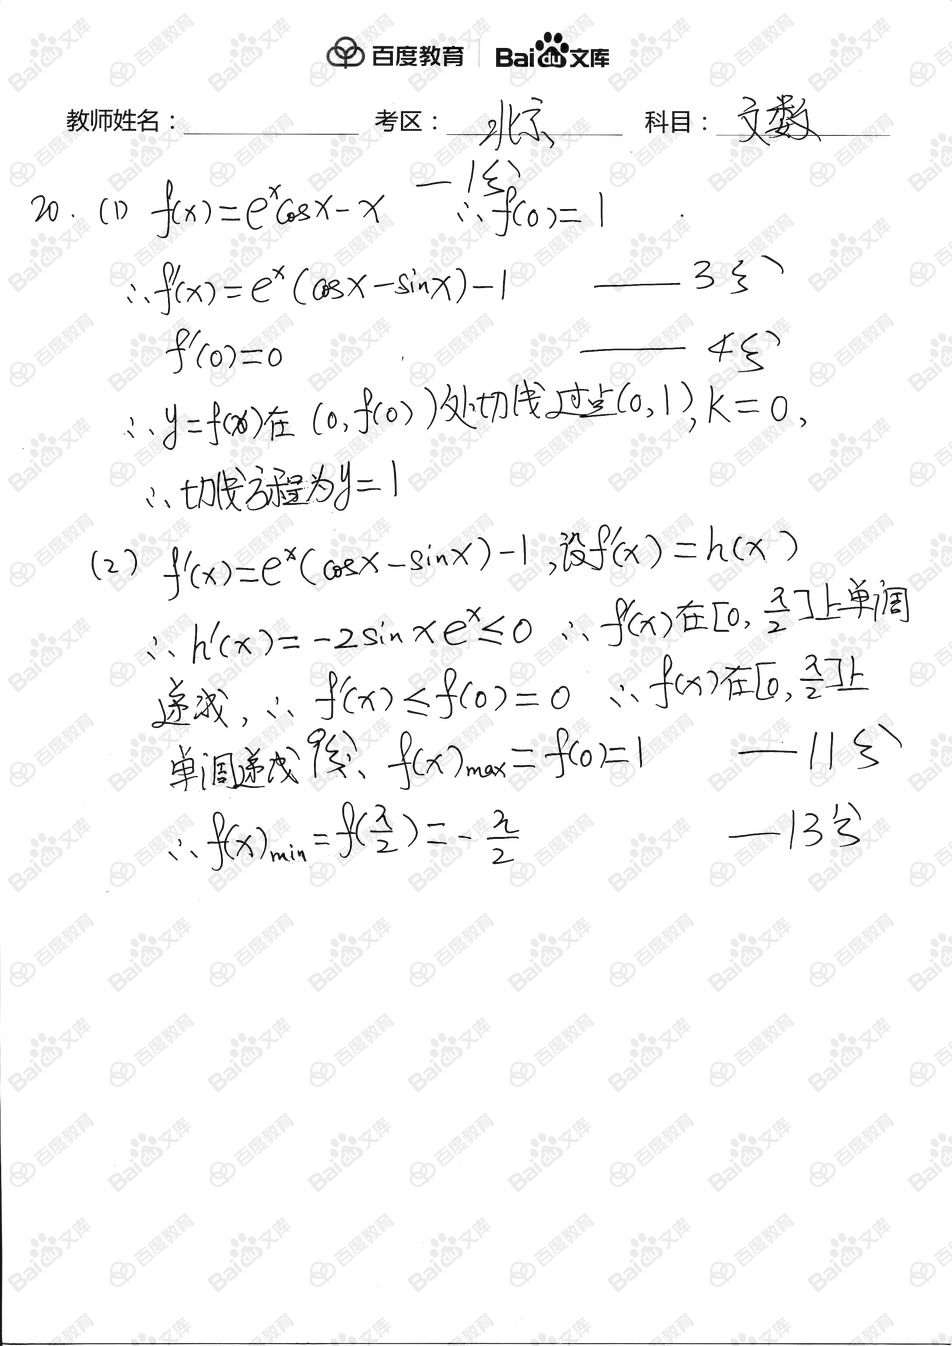 百度教育 | Bai du 文库
教师姓名：  考区：北京  科目：文数
—1分
20. (1) f(x)=e^x cosx-x  ∴f(0)=1
∴f'(x)=e^x(cosx-sinx)-1 ——3分
f'(0)=0 ——4分
∴y=f(x)在(0,f(0))处切线过点(0,1),K=0,
∴切线方程为y=1
(2) f'(x)=e^x(cosx-sinx)-1,设f'(x)=h(x)
∴h'(x)=-2sinxe^x≤0 ∴f'(x)在[0,π/2]上单调
递减,∴f'(x)≤f'(0)=0 ∴f(x)在[0,π/2]上
单调递减 9分∴f(x)max=f(0)=1 —11分
∴f(x)min=f(π/2)=-π/2 —13分